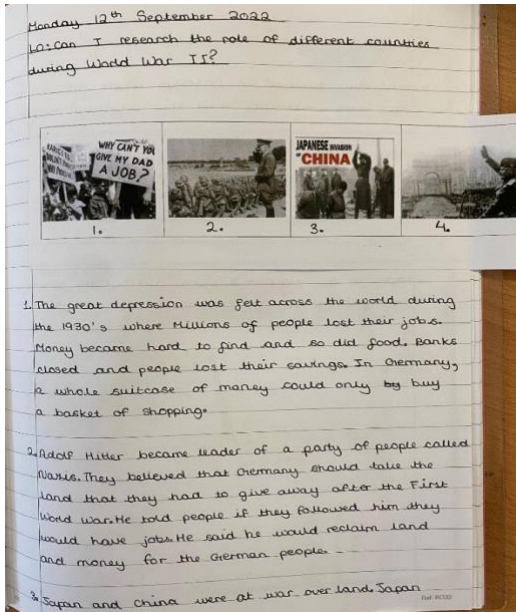 Monday 12th September 2022
LO: Can I research the role of different countries
during World War II?
WHY CAN'T YOU
GIVE MY DAD
A JOB?
JAPANESE INVASION
OF CHINA
1.
2.
3.
4.
1. The great depression was felt across the world during
the 1930's where Millions of people lost their jobs.
Money became hard to find and so did food. Banks
closed and people lost their savings. In Germany,
a whole suitcase of money could only by buy
a basket of shopping.
2. Adolf Hitler became leader of a party of people called
Nazis. They believed that Germany should take the
land that they had to give away after the First
World War. He told people if they followed him they
would have jobs. He said he would reclaim land
and money for the German people.
3. Japan and China were at war over land. Japan